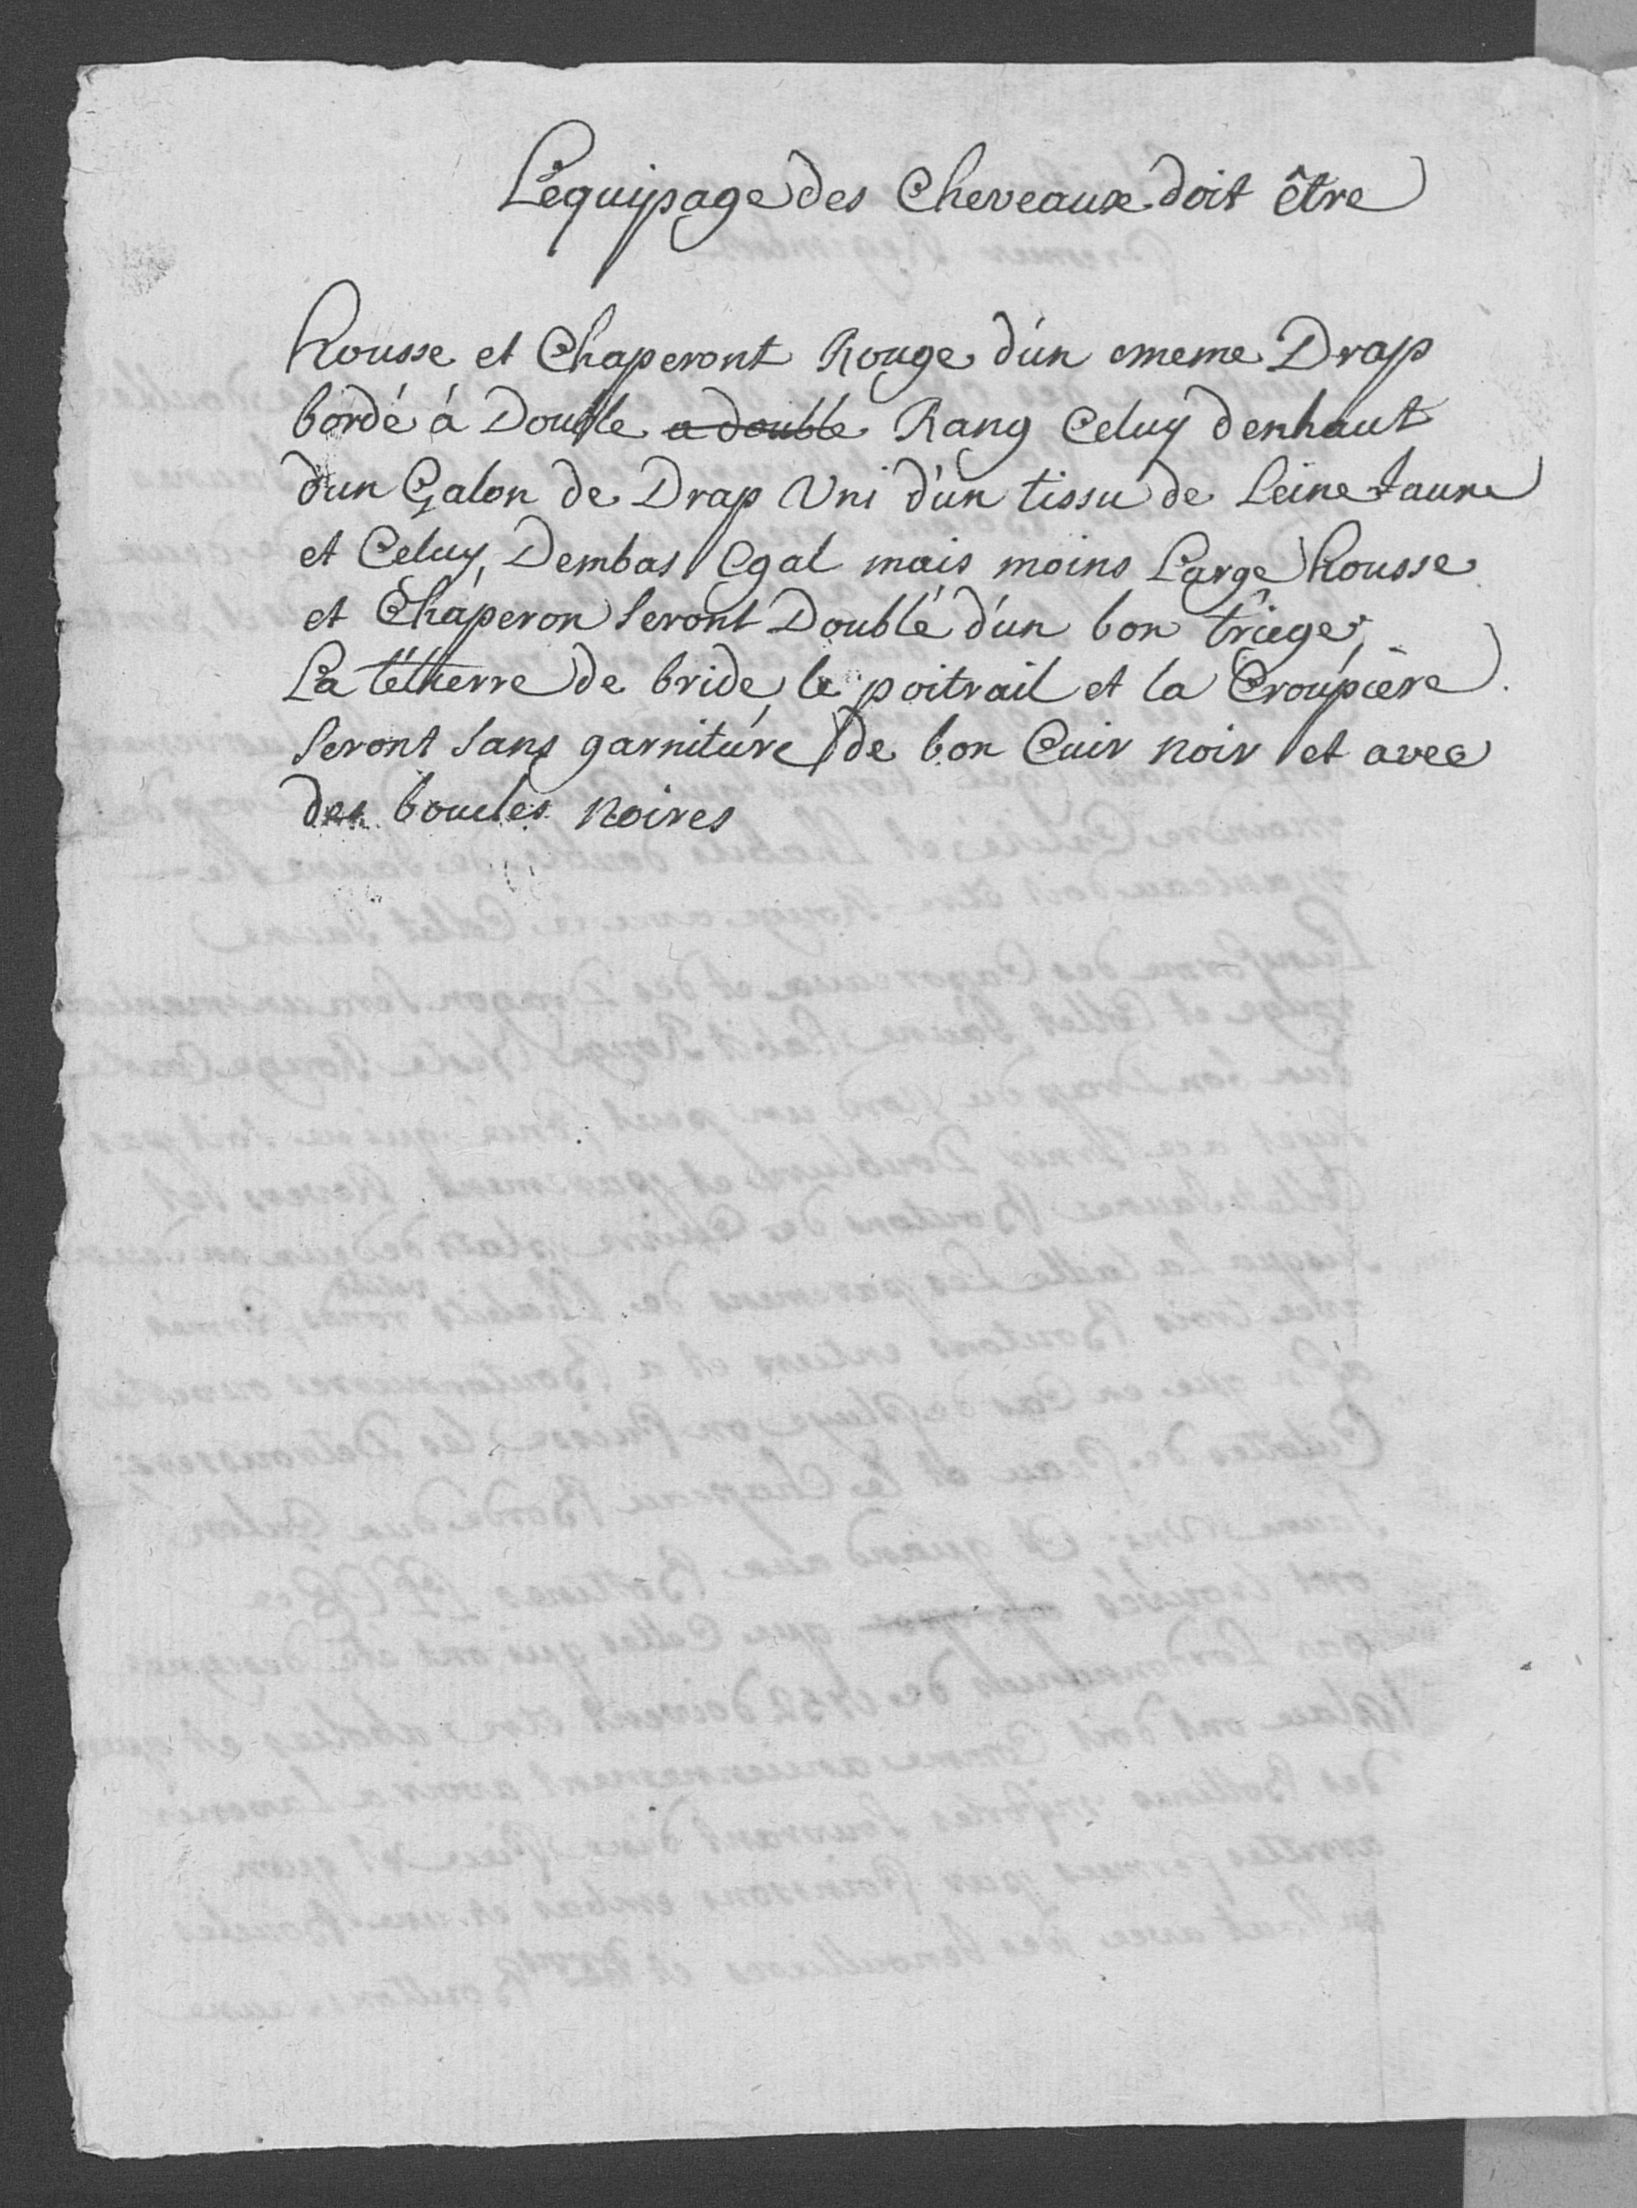 L'equipage des Cheveaux doit être
housse et Chaperont Rouge d'un meme Drap
bordé à Double a double Rang Celuy denhaut
d'un Galon de Drap Uni d'un tissu de Leine Jaune
et Celuy, Dembas Egal mais moins Large housse
et Chaperon Seront Doublé d'un bon triege,
La tétierre de bride, le poitrail et la Croupière
Seront Sans garniture de bon Cuir noir et avec
des boucles noires